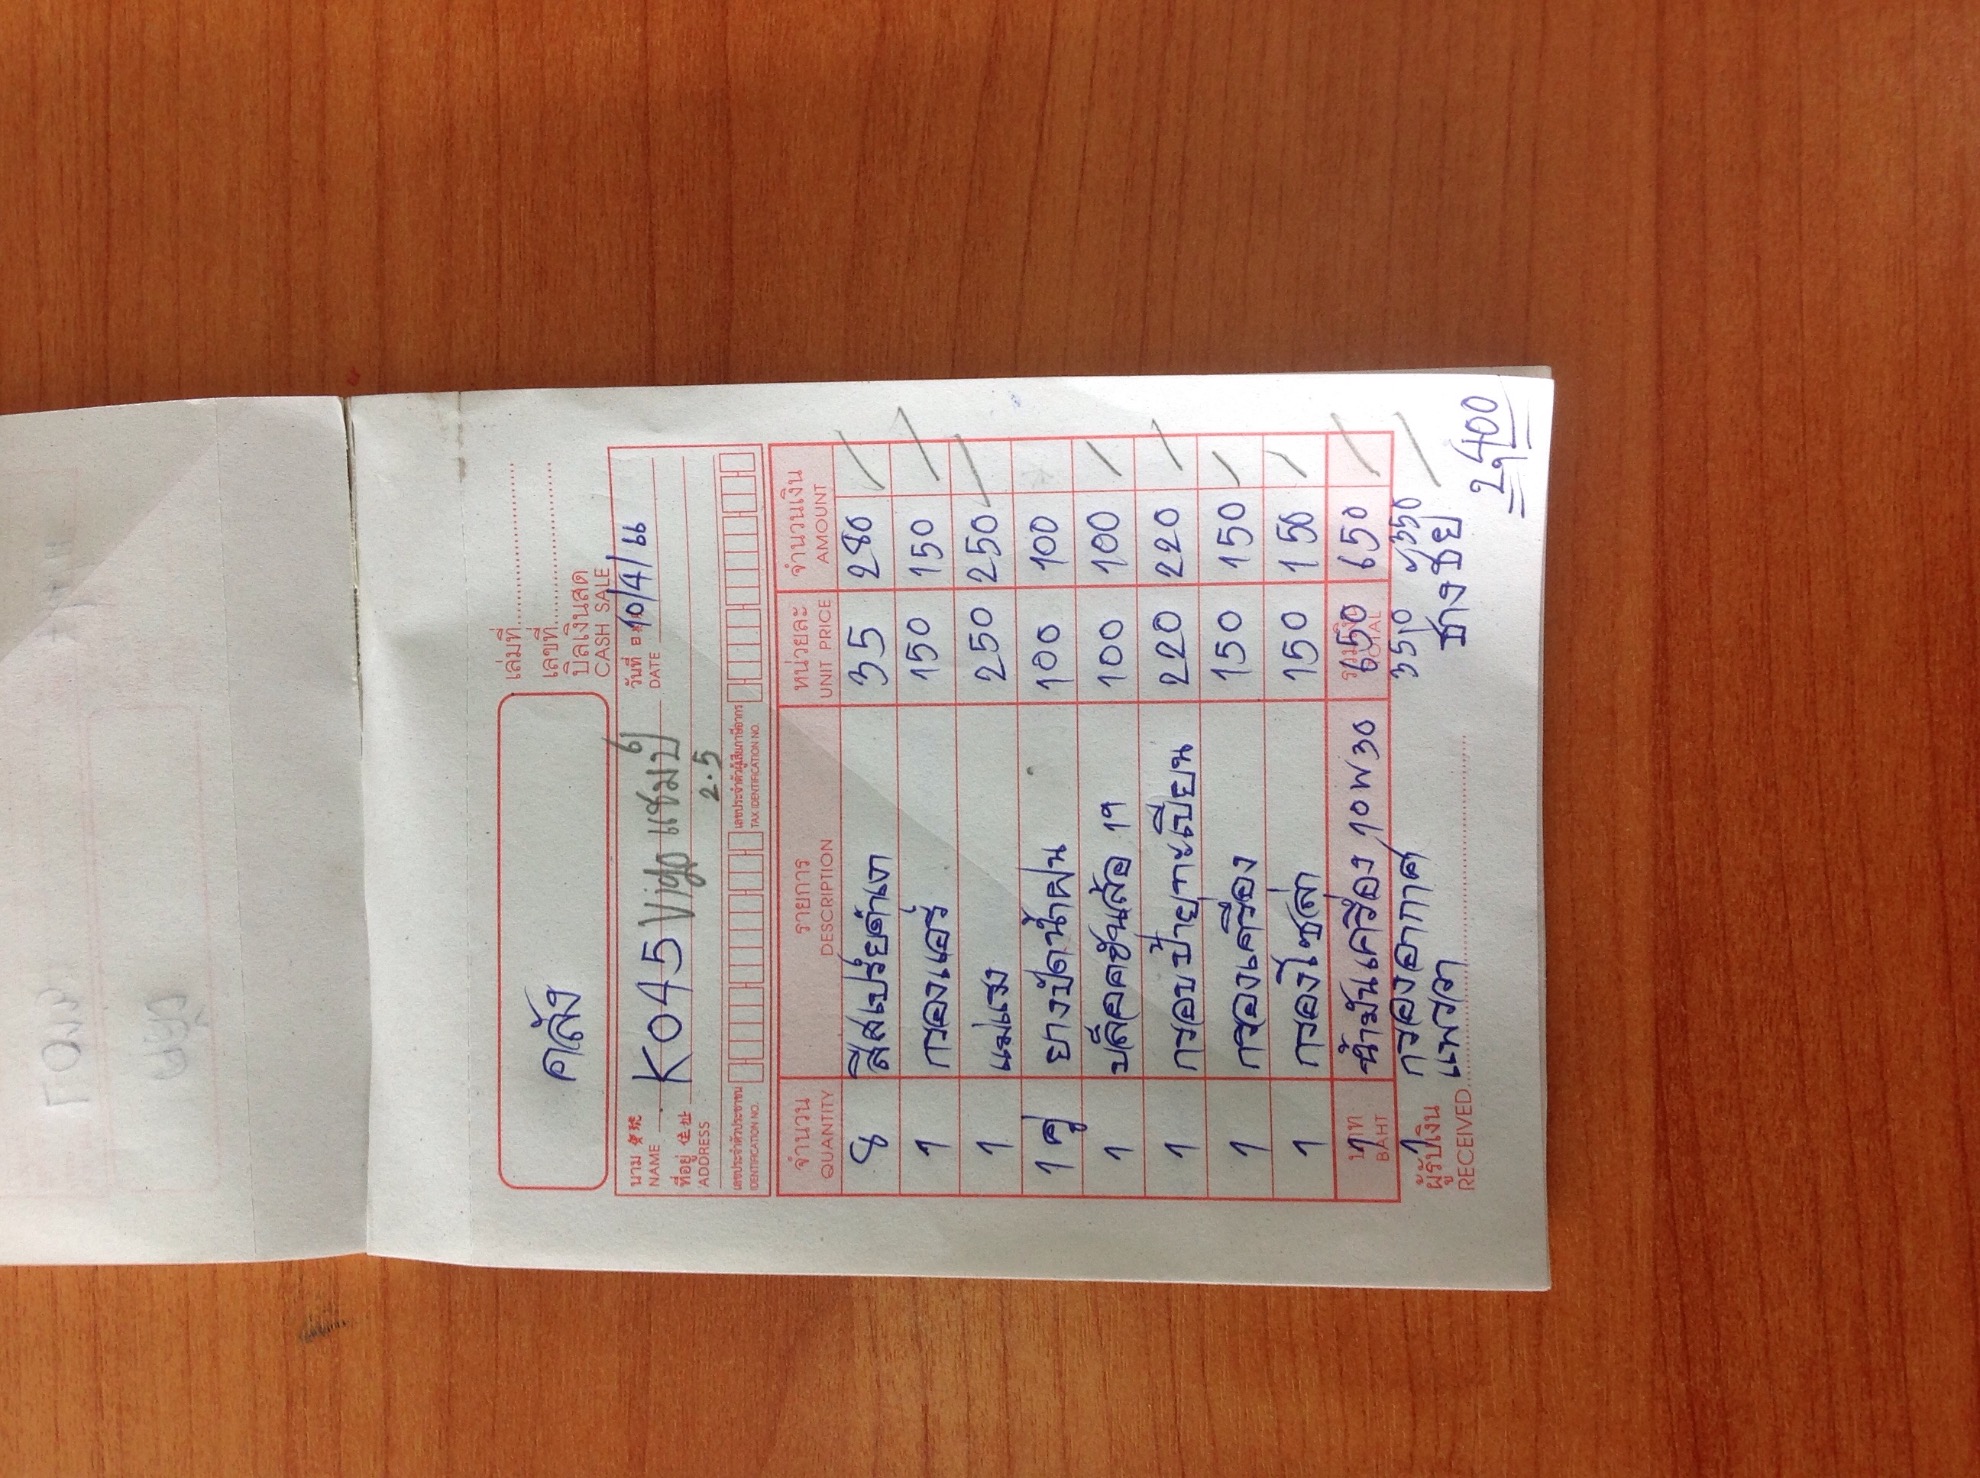 คลัง
เล่มที่
เลขที่
บิลเงินสด
CASH SALE
นาม NAME K045 Vigo แชมป์ วันที่ DATE 10/4/66
ที่อยู่ ADDRESS 2.5
เลขประจำตัวประชาชน เลขประจำตัวผู้เสียภาษีอากร
IDENTIFICATION NO. TAX IDENTIFICATION NO.
จำนวน รายการ หน่วยละ จำนวนเงิน
QUANTITY DESCRIPTION UNIT PRICE AMOUNT
8 สีสเปรย์ดำเงา 35 280
1 กรองแอร์ 150 150
1 แม่แรง 250 250
1 คู่ ยางปัดน้ำฝน 100 100
1 บล็อคขันล้อ 19 100 100
1 กรอบป้ายทะเบียน 220 220
1 กรองเครื่อง 150 150
1 กรองโซล่า 150 150
1 น้ำมันเครื่อง 10W30 650 650
บาท BAHT รวมเงิน TOTAL
1 กรองอากาศ 350 350
แพรวา ช่างชัย
ผู้รับเงิน
RECEIVED
2,400